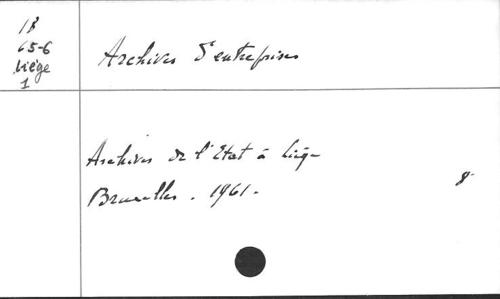 1B
65-6
Liège
1
Archives d'entreprises
Archives de l'Etat à Liège
Bruxelles. 1961.
8°